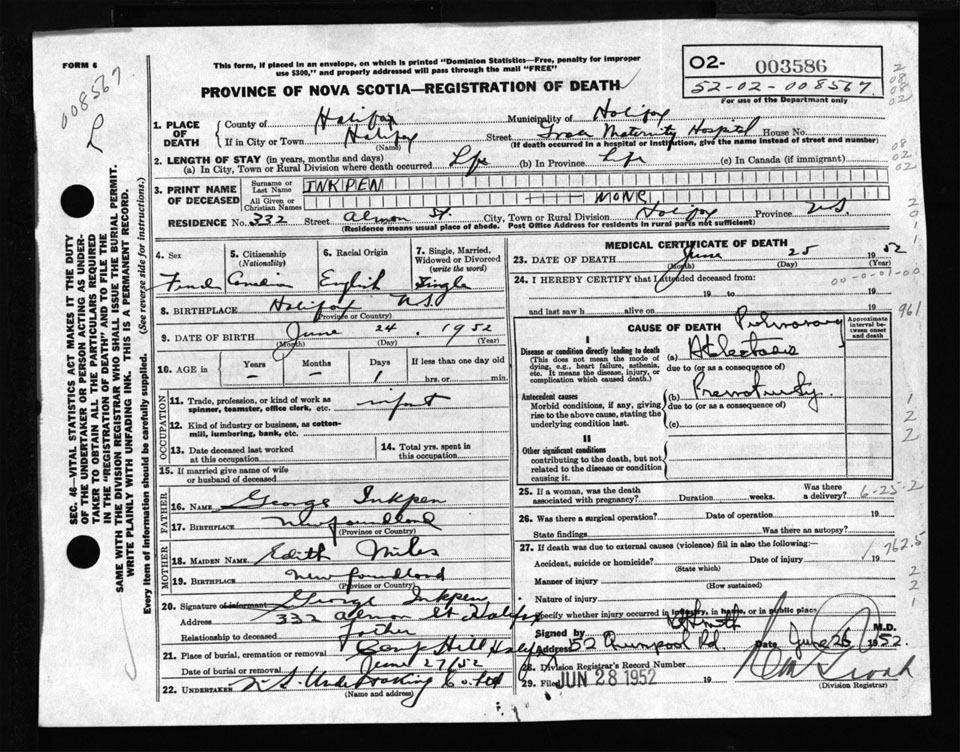 FORM 6
This form, if placed in an envelope, on which is printed "Dominion Statistics—Free, penalty for improper
use $300," and properly addressed will pass through the mail "FREE"
PROVINCE OF NOVA SCOTIA—REGISTRATION OF DEATH
O2- 003586
52-02-008567
For use of the Department only
008567
SEC. 46—VITAL STATISTICS ACT MAKES IT THE DUTY
OF THE UNDERTAKER OR PERSON ACTING AS UNDER-
TAKER TO OBTAIN ALL THE PARTICULARS REQUIRED
IN THE "REGISTRATION OF DEATH" AND TO FILE THE
SAME WITH THE DIVISION REGISTRAR WHO SHALL ISSUE THE BURIAL PERMIT.
WRITE PLAINLY WITH UNFADING INK. THIS IS A PERMANENT RECORD.
Every item of information should be carefully supplied. (See reverse side for instructions.)
1. PLACE OF DEATH
County of Halifax Municipality of Halifax
If in City or Town Halifax Street Grace Maternity Hospital House No.
(Name) (If death occurred in a hospital or institution, give the name instead of street and number)
2. LENGTH OF STAY (in years, months and days)
(a) In City, Town or Rural Division where death occurred Life (b) In Province Life (c) In Canada (if immigrant)
3. PRINT NAME OF DECEASED
Surname or Last Name INKPEN
All Given or Christian Names NONE
RESIDENCE No. 332 Street Almon St. City, Town or Rural Division Halifax Province N.S.
(Residence means usual place of abode. Post Office Address for residents in rural parts not sufficient)
4. Sex
5. Citizenship (Nationality)
6. Racial Origin
7. Single, Married, Widowed or Divorced (write the word)
Canadian English Single
8. BIRTHPLACE Halifax N.S.
(Province or Country)
9. DATE OF BIRTH June 24, 1952
(Month) (Day) (Year)
10. AGE in Years — Months — Days 1 If less than one day old hrs. or min.
OCCUPATION
11. Trade, profession, or kind of work as spinner, teamster, office clerk, etc. infant
12. Kind of industry or business, as cotton-mill, lumbering, bank, etc.
13. Date deceased last worked at this occupation
14. Total yrs. spent in this occupation
15. If married give name of wife or husband of deceased
FATHER
16. NAME George Inkpen
17. BIRTHPLACE Newfoundland
(Province or Country)
MOTHER
18. MAIDEN NAME Edith Miles
19. BIRTHPLACE Newfoundland
(Province or Country)
20. Signature of informant George Inkpen
Address 332 Almon St Halifax
Relationship to deceased father
21. Place of burial, cremation or removal Camp Hill Halifax
Date of burial or removal June 27/52
22. UNDERTAKER N.S. Undertaking Co. Ltd
(Name and address)
MEDICAL CERTIFICATE OF DEATH
23. DATE OF DEATH June 25 1952
(Month) (Day) (Year)
24. I HEREBY CERTIFY that I attended deceased from:
00-0-01-00
19 to 19
and last saw h alive on 19
961
CAUSE OF DEATH
Approximate interval between onset and death
I
Disease or condition directly leading to death
(This does not mean the mode of dying, e.g., heart failure, asthenia, etc. It means the disease, injury, or complication which caused death.)
(a) Pulmonary Atelectasis
due to (or as a consequence of)
Antecedent causes
Morbid conditions, if any, giving rise to the above cause, stating the underlying condition last.
(b) Prematurity.
due to (or as a consequence of)
(c)
II
Other significant conditions
contributing to the death, but not related to the disease or condition causing it.
25. If a woman, was the death associated with pregnancy? Duration weeks. Was there a delivery?
6-25-2
26. Was there a surgical operation? Date of operation 19
State findings Was there an autopsy?
27. If death was due to external causes (violence) fill in also the following:—
762.5
Accident, suicide or homicide? Date of injury 19
(State which)
Manner of injury
(How sustained)
Nature of injury
Specify whether injury occurred in industry, in home, or in public place
Signed by M.D.
Address 52 Quinpool Rd. Date June 26 1952
28. Division Registrar's Record Number
29. Filed JUN 28 1952 19
(Division Registrar)